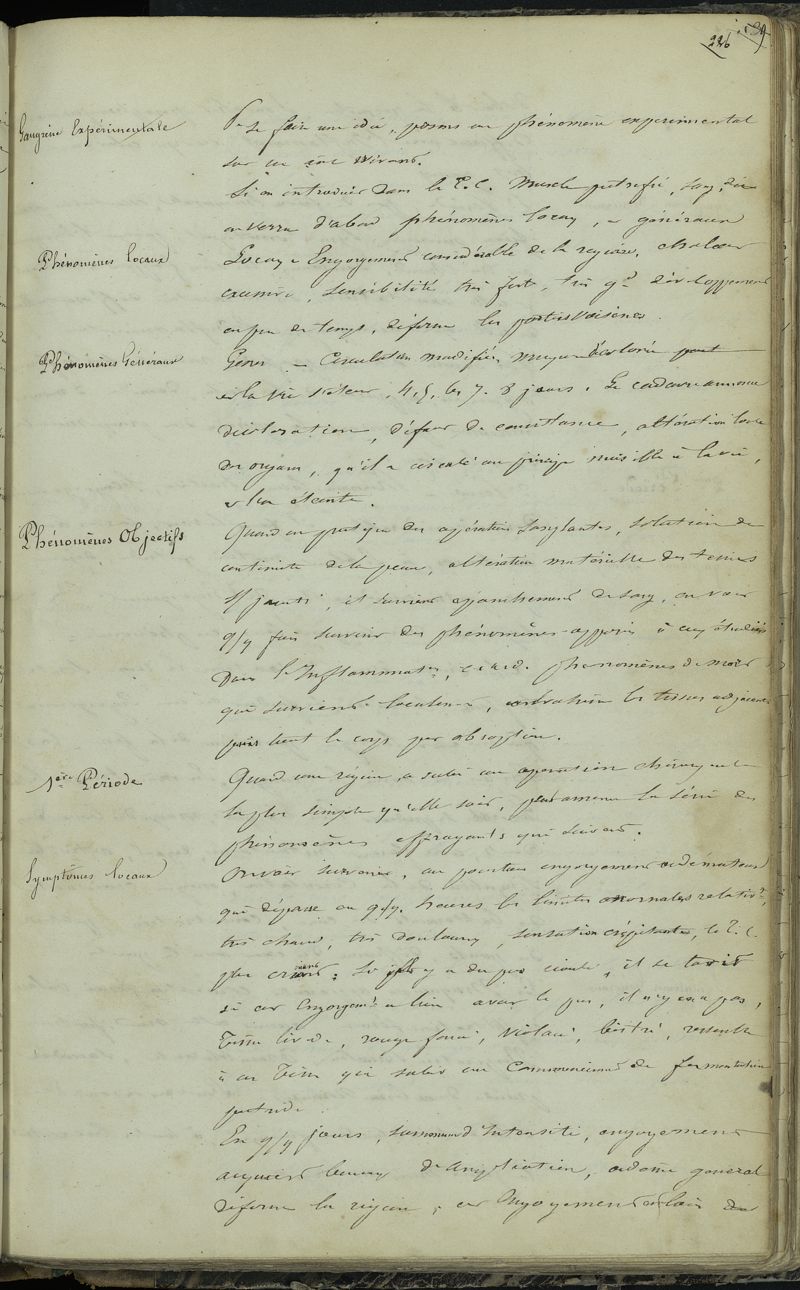 226
Gangrène Expérimentale
Pr se faire une idée, posons un phénomène experimental
sur un être vivant.
Si on introduit dans le T. C. Muscle putrefié, sang,
on verra d'abord phénomènes locaux, et généraux
Phénomènes locaux
Locaux = Engorgement considérable de la region, chaleur
excessive, sensibilité très forte, très gd développement
en peu de temps, déforme les parties voisines.
Phénomènes Généraux
Genx = Circulation modifiée,
4, 5, 6, 7, 8 jours. Le cadavre annonce
décoloration, défaut de consistance, altération
des organes, qu'il a circulé un principe nuisible à la vie,
et l'a éteinte.
Phénomènes Objectifs
Quand on pratique des opérations sanglantes, solution de
continuité de la peau, altération matérielle des tissus
s/ jacents, et survient épanchement de sang, on voit
q/q fois survenir des phénomènes opposés à ceux étudiés
Dans l'Inflammaton, c. à. d. phénomènes de mort
qui surviennent localement, les tissus adjacents
puis tout le corps par absorption.
1ère Période
Quand une région a subi une opération chirurgicale
la plus simple qu'elle soit, peut amener la série des
phénomènes effrayants qui suivent.
Symptômes locaux
On voit survenir, au pourtour engorgement œdémateux
qui dépasse en q/q. heures les limites normales
très chaud, très douloureux, sensation crépitante, le T. C.
plus crépitant. Si plaie y a du pus écoulé, il se tarit
si cet Engorgemt a lieu avant le pus, il n'y en a pas,
Tissu livide, rouge foncé, violacé, bistré, ressemble
à un Tissu qui subit un Commencement de fermentation
putride.
En q/q jours, summum d'Intensité, engorgement
acquiert beaucoup d'ampliation, œdème general
déforme la région, cet Engorgement